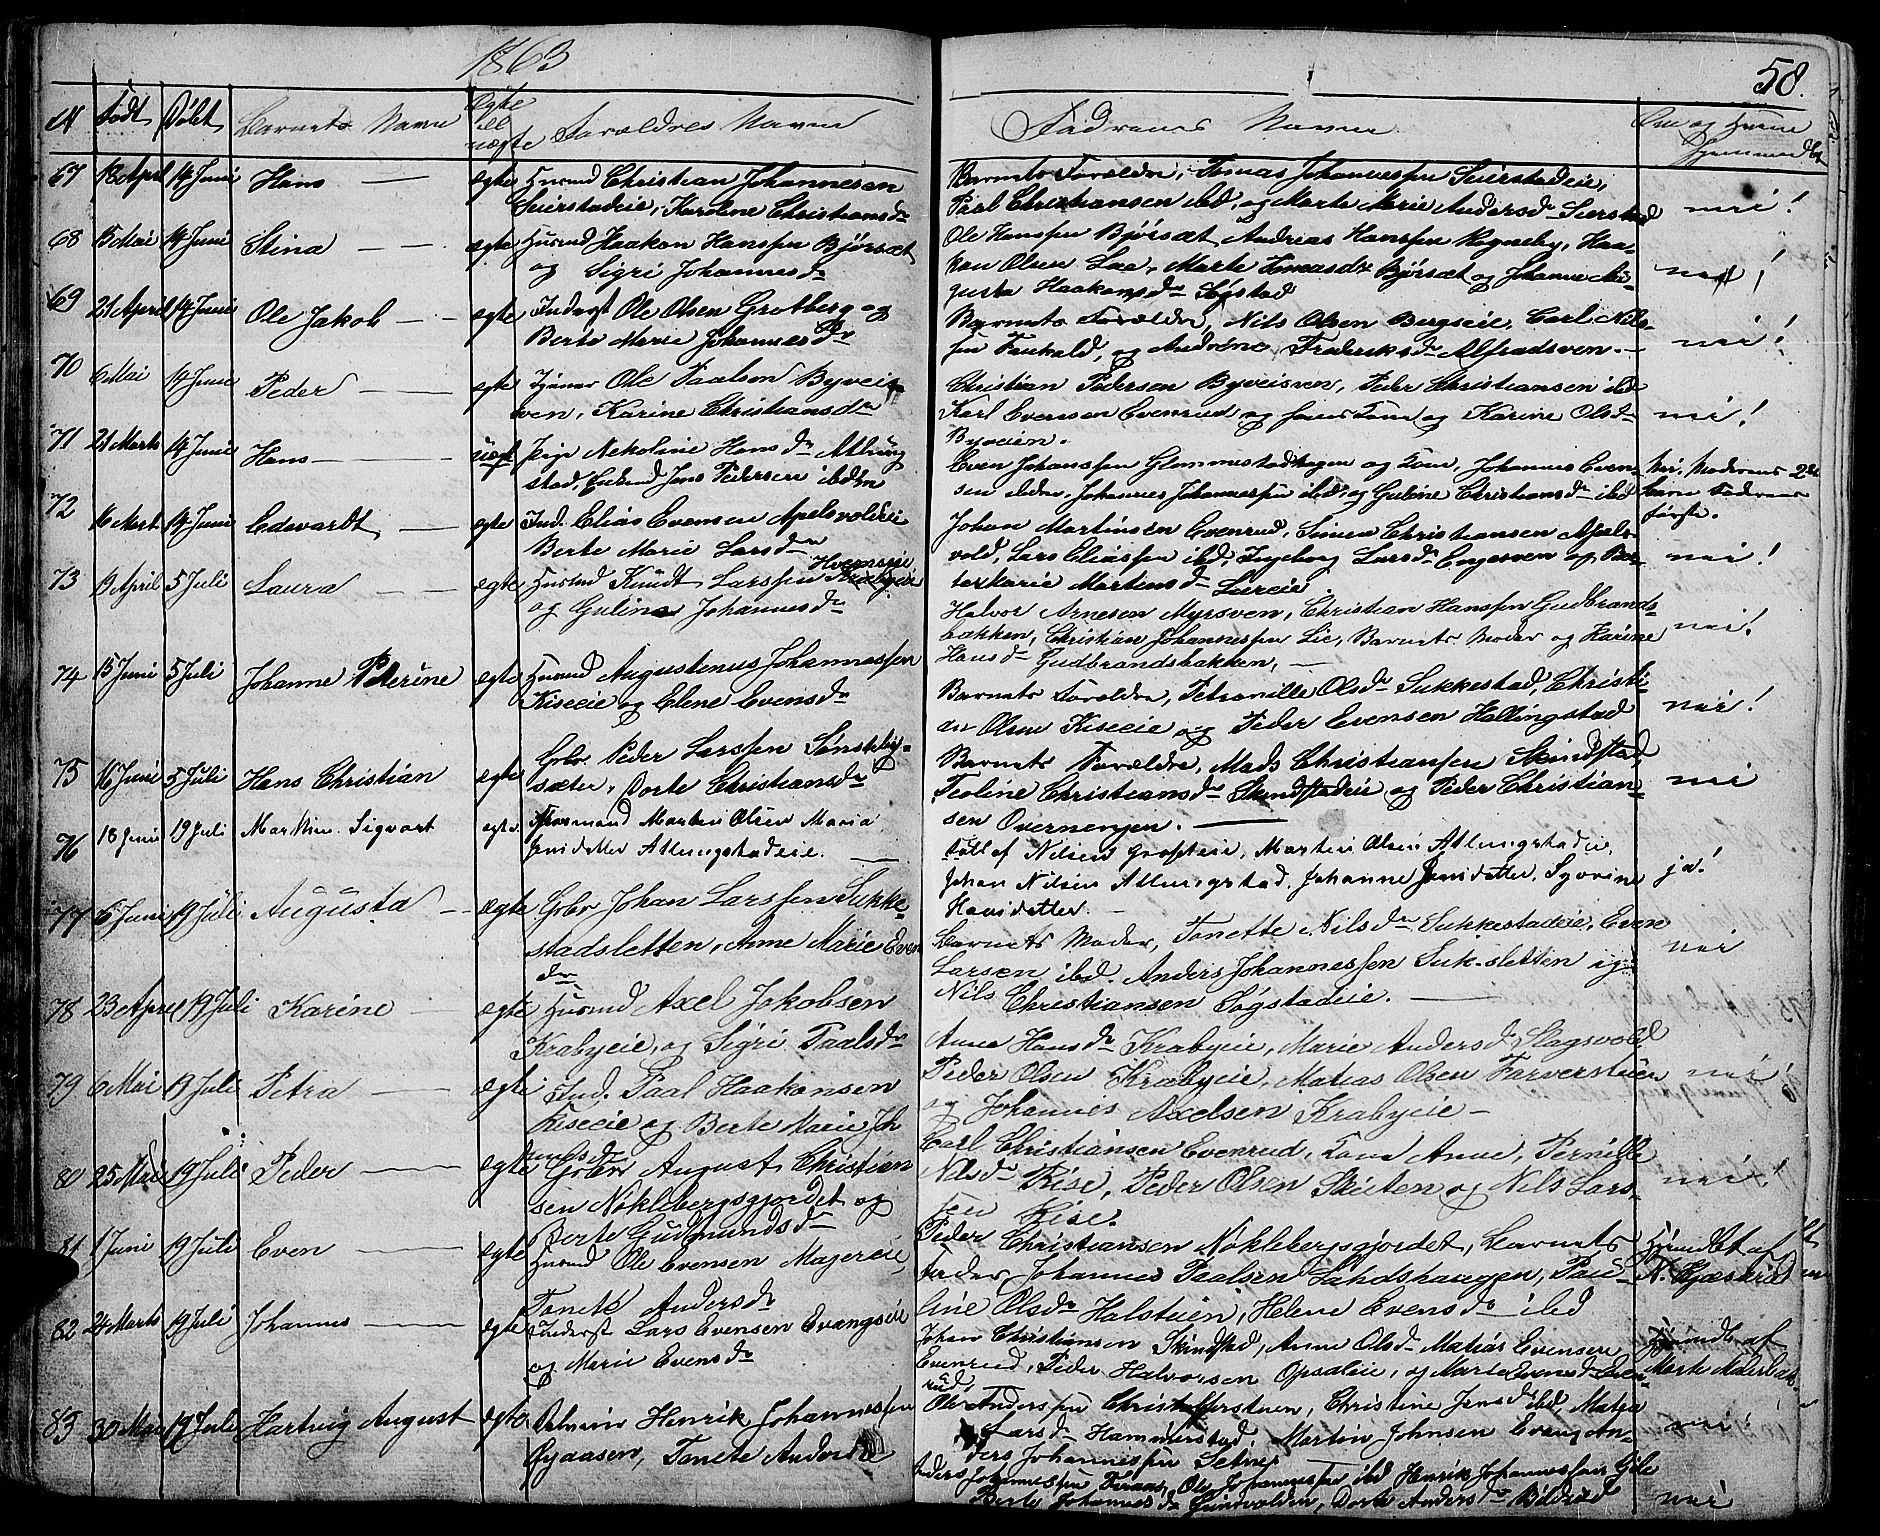 1863
58.
N Født Døbt Barnets Navn Ægte ell uægte Forældres Navne Fadrenes Navne Om og hvem hjemmedbt
67 18 April 14 Juni Hans ægte Husmd Christian Johannesen
Seierstadeie, Karoline Christiansdr
Barnets Forældre, Tomas Johannessen Seierstadeie,
Paal Christiansen ibd, og Marte Marie Andersdr Seierstad
nei!
68 15 Mai 14 Juni Stina ægte Husmd Haakon Hanssen Bjørsæt
og Sigri Johannesdr
Ole Hanssen Bjørsæt Andreas Hanssen Rogneby, Haa-
kon Olsen Lae, Marte Tomasdr Bjørsæt og Johanne Au-
gusta Haakonsdr Søgstad
nei!
69 21 April 14 Juni Ole Jakob ægte Inderst Ole Olsen Grotberg og
Berte Marie Johannesdr
Barnets Forældre, Nils Olsen Bergseie, Carl Nils-
sen Faukald, og Andrene Frederiksdr Alfradsven.
nei!
70 6 Mai 14 Juni Peder egte Ole Paalsen Byvei
ven, Karine Christiansdr
Christian Pedersen Byveisven, Peder Christiansen ibd
Karl Evensen Evenrud og hans Kone og Karine Olsdr
Byveien.
nei!
71 21 Marts 14 Juni Hans uægt Pige Nekoline Hansdr Atlung
stad, Enkemd Jens Pedersen ibdm
Even Johanssen Glemmestadhagen og Kone, Johannes Even-
sen ibdm, Johannes Johannessen ibd, og Guline Christiansdr ibd
Nei, Moderens 2det
barn Fadrens
første.
72 16 Mart. 14 Juni Edevardt egte Ind. Elias Evensen Apelsvoldeie
Berte Marie Larsdr
Johan Martinsen Evenrud, Simen Christiansen Apels-
vold, Lars Eliassen ibd, Ingeborg Larsdr Engesven og Ber-
te Marie Martensdr Lureie
nei!
73 19 April 5 Juli Laura ægte Husmd Knudt Larssen Hvemseie
og Guline Johannesdr
Halvor Arnesen Myrsven, Christian Hanssen Gudbrands-
bakken, Christian Johannessen Lie, Barnets Moder og Karine
Hansdr Gudbrandsbakken,
nei!
74 15 Juni 5 Juli Johanne Peterine ægte Husmd Augustenus Johannessen
Kiseeie og Elene Evensdr
Barnets Forældre, Petronille Olsdr Sukkestad, Christi-
an Olsen Kiseeie og Peder Evensen Hallingstad
nei!
75 16 Juni 5 Juli Hans Christian ægte Grbr. Peder Larssen Sønsteby-
sæter, Dorte Christiansdr
Barnets Forældre, Mads Christianssen Skindstad,
Teoline Christiansdr Skindstadeie og Peder Christian-
sen Overnengen.
nei
76 18 Juni 19 Juli Marthin Sigvart egte Huusmand Martin Olsen Maria
Jensdatter Atlungstadeie.
Nilsens Martin Olsen Atlungstadeie,
Johan Nilsen Atlungstad, Johanne Jensdatter, Syverine
Hansdatter.
ja!
77 6 Juni 19 Juli Augusta ægte Grbr Johan Larssen Sukke-
stadsletten, Anne Marie Even
dr
Barnets Moder, Tonette Nilsdr Sukkestadeie, Even
Larsen ibd, Anders Johannessen Suk.sletten og
Nils Christiansen Søgstadeie.
nei
78 23 April 19 Juli Karine ægte Husmd Axel Jakobsen
Krabyeie, og Sigri Paalsdr
Anne Hansdr Krabyeie, Marie Andersdr Slagsvold
Peder Olsen Krabyeie, Matias Olsen Farverstuen
og Johannes Axelsen Krabyeie
nei!
79 6 Mai 19 Juli Petra ægte Ind. Paal Haakonsen
Kiseeie og Berte Marie Joh
Carl Christiansen Evenrud, Kone Anne, Pernille
Nilsdr Kise, Peder Olsen Skiten og Nils Lars-
sen Kise.
nei!
80 25 Mai 19 Juli Peder ægte Grbr August Christian
sen Nøklebergsgjordet og
Dorte Gudmundsdr
Peder Christiansen Nøklebergsgjordet, Barnets
Fader, Johannes Paalsen Landshaugen, Pau-
line Olsdr Halstuen, Helene Evensdr ibid
Hjemdbt af
81 1 Juni 19 Juli Even ægte Husmd Ole Evensen Majereie,
Tonete Andersdr
Johan Christiansen Skindstad, Anne Olsdr Matias Evensen
Evenrud, Peder Halvorsen Opsaleie, og Marte Evensdr Even-
rud,
Hjemdbt af
82 24 Marts 19 Juli Johannes egte Inderst Lars Evensen Evangseie
og Marie Evensdr
Ole Anderssen Christine Jensdr ibd, Matea
Larsdr Hammerstad, Martin Johnsen Evang, An-
ders Johannessen
nei!
83 30 Mai 19 Juli Hartvig August ægte Henrik Johannessen
Øyaasen, Tonete Andersdr
Anders Johannessen Ole Johannessen ibd Henrik Johannessen
Berte Johannesdr Dorte Andersdr
nei